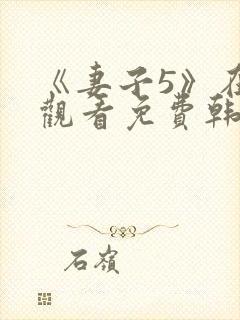 《妻子5》在
觀看免費韓
石嶺